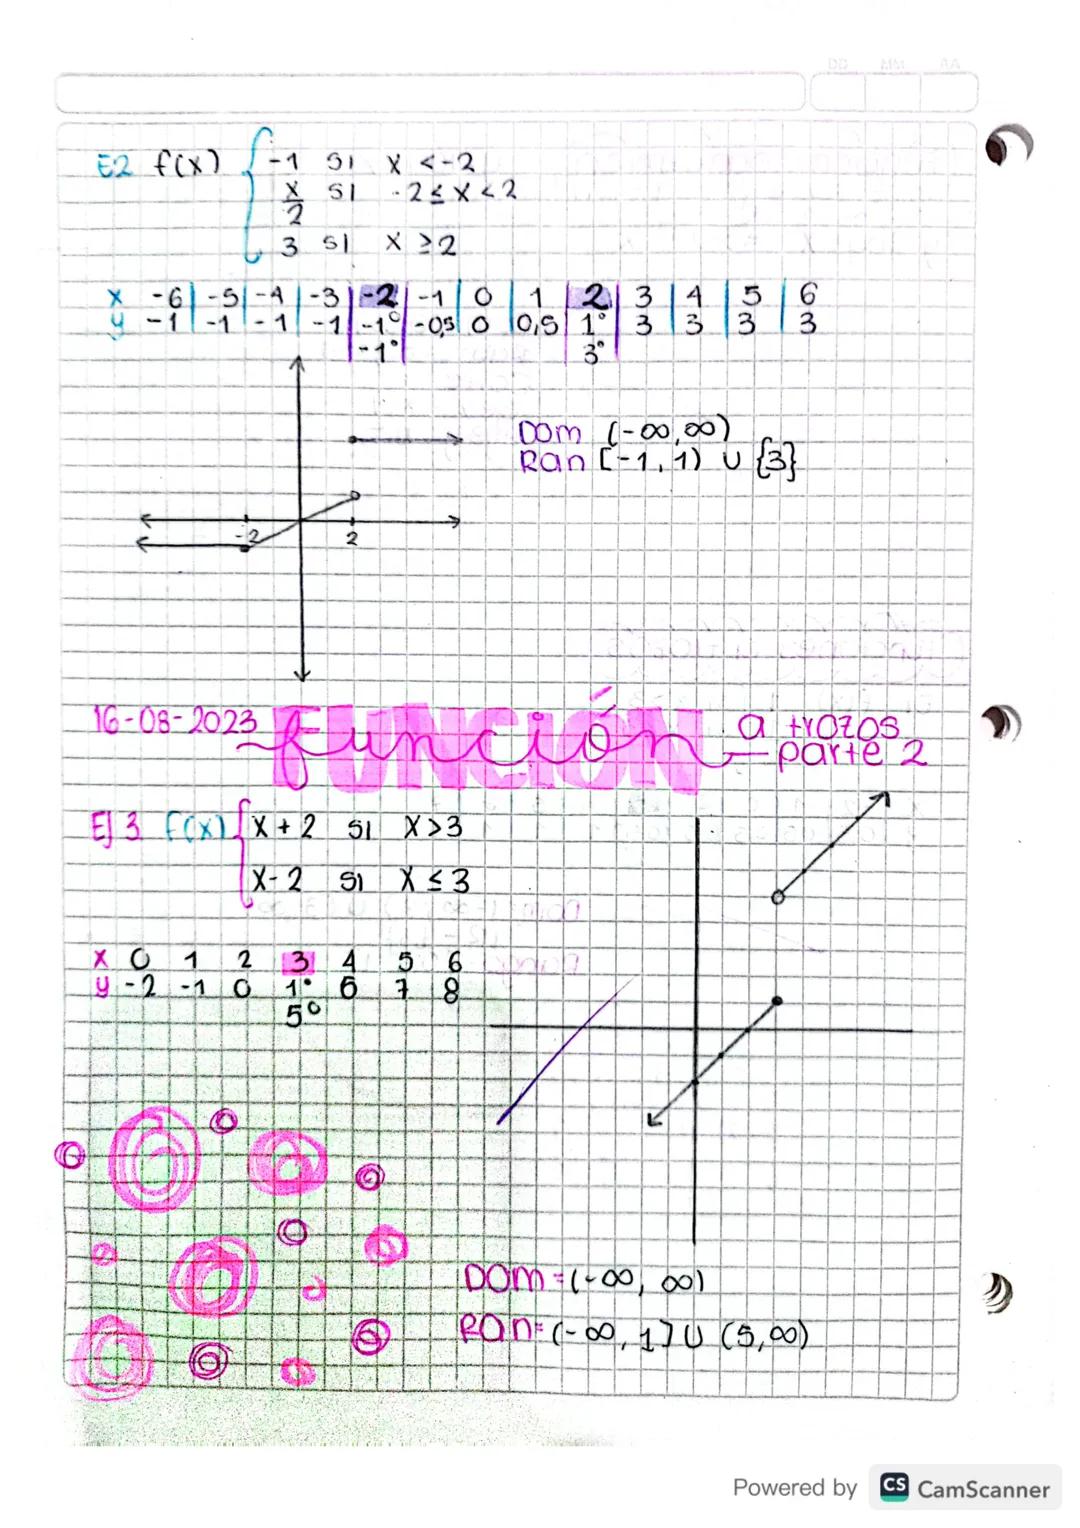 DD MM AA
E2 f(x) { -1 si x < -2
x/2 si -2 ≤ x < 2
3 si x ≥ 2
x -6 | -5 | -4 | -3 | -2 | -1 | 0 | 1 | 2 | 3 | 4 | 5 | 6
y -1 | -1 | -1 | -1 | -1° | -0,5 | 0 | 0,5 | 1° | 3 | 3 | 3 | 3
-1° 3°
Dom (-∞,∞)
Ran [-1, 1) U {3}
-2 2
16-08-2023 FUNCIÓN función a trozos
parte 2
EJ 3 f(x) { x + 2 si x > 3
x - 2 si x ≤ 3
x 0 1 2 3 4 5 6
y -2 -1 0 1° 6 7 8
5°
DOM = (-∞, ∞)
Ran = (-∞, 1] U (5,∞)
Powered by CS CamScanner